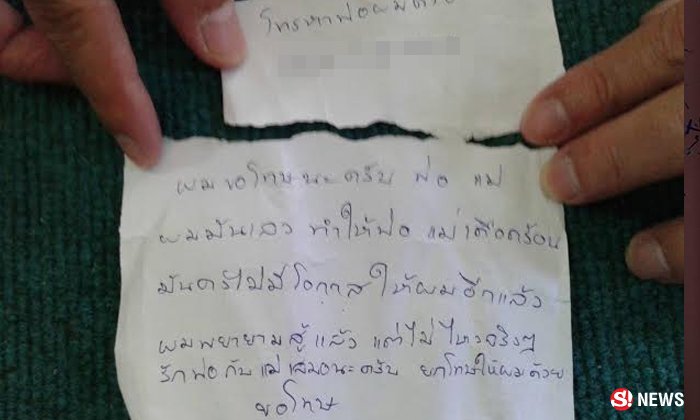 โทรหาพ่อผมด้วย
ผมขอโทษนะครับ พ่อ แม่
ผมมันเลว ทำให้พ่อ แม่เดือดร้อน
มันคงไม่มีโอกาสให้ผมอีกแล้ว
ผมพยายามสู้แล้ว แต่ไม่ไหวจริงๆ
รักพ่อกับแม่เสมอนะครับ ยกโทษให้ผมด้วย
ขอโทษ
S! NEWS